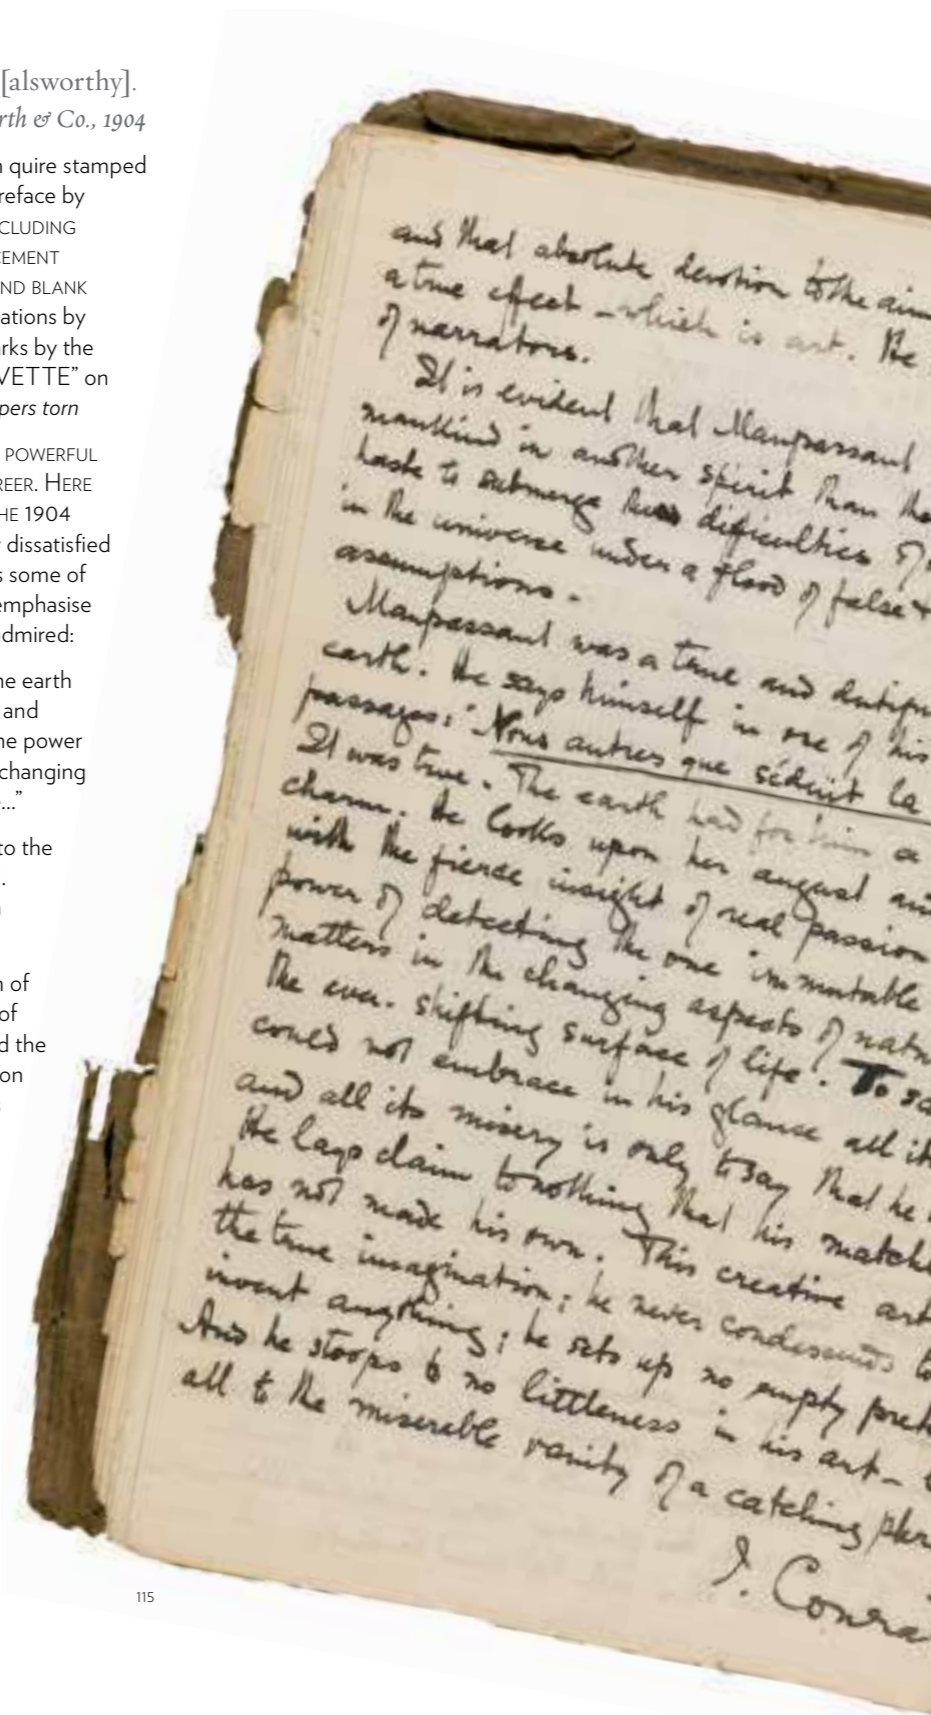 [alsworthy].
rth & Co., 1904
n quire stamped
reface by
CLUDING
EMENT
ND BLANK
ations by
rks by the
VETTE” on
pers torn
POWERFUL
REER. HERE
HE 1904
dissatisfied
s some of
emphasise
dmired:
he earth
and
he power
changing
...”
to the
.
n of
of
d the
on
115
and that absolute devotion to the aim
a true effect – which is art. He
of narrators.
It is evident that Maupassant
mankind in another spirit than
haste to submerge the difficulties of
in the universe under a flood of false &
assumptions.
Maupassant was a true and
earth. He says himself in one of his
passages: "Nous autres que séduit la
It was true. The earth had for him a
charm. He looks upon her august and
with the fierce insight of real passion
power of detecting the one immutable
matters in the changing aspects of
the ever-shifting surface of life. To
could not embrace in his glance all
and all its misery is only to say that he
He lays claim to nothing that his
has not made his own. This creative
the true imagination; he never condescends to
invent anything; he sets up no empty
And he stoops to no littleness in his art –
all to the miserable vanity of a catching
J. Conra